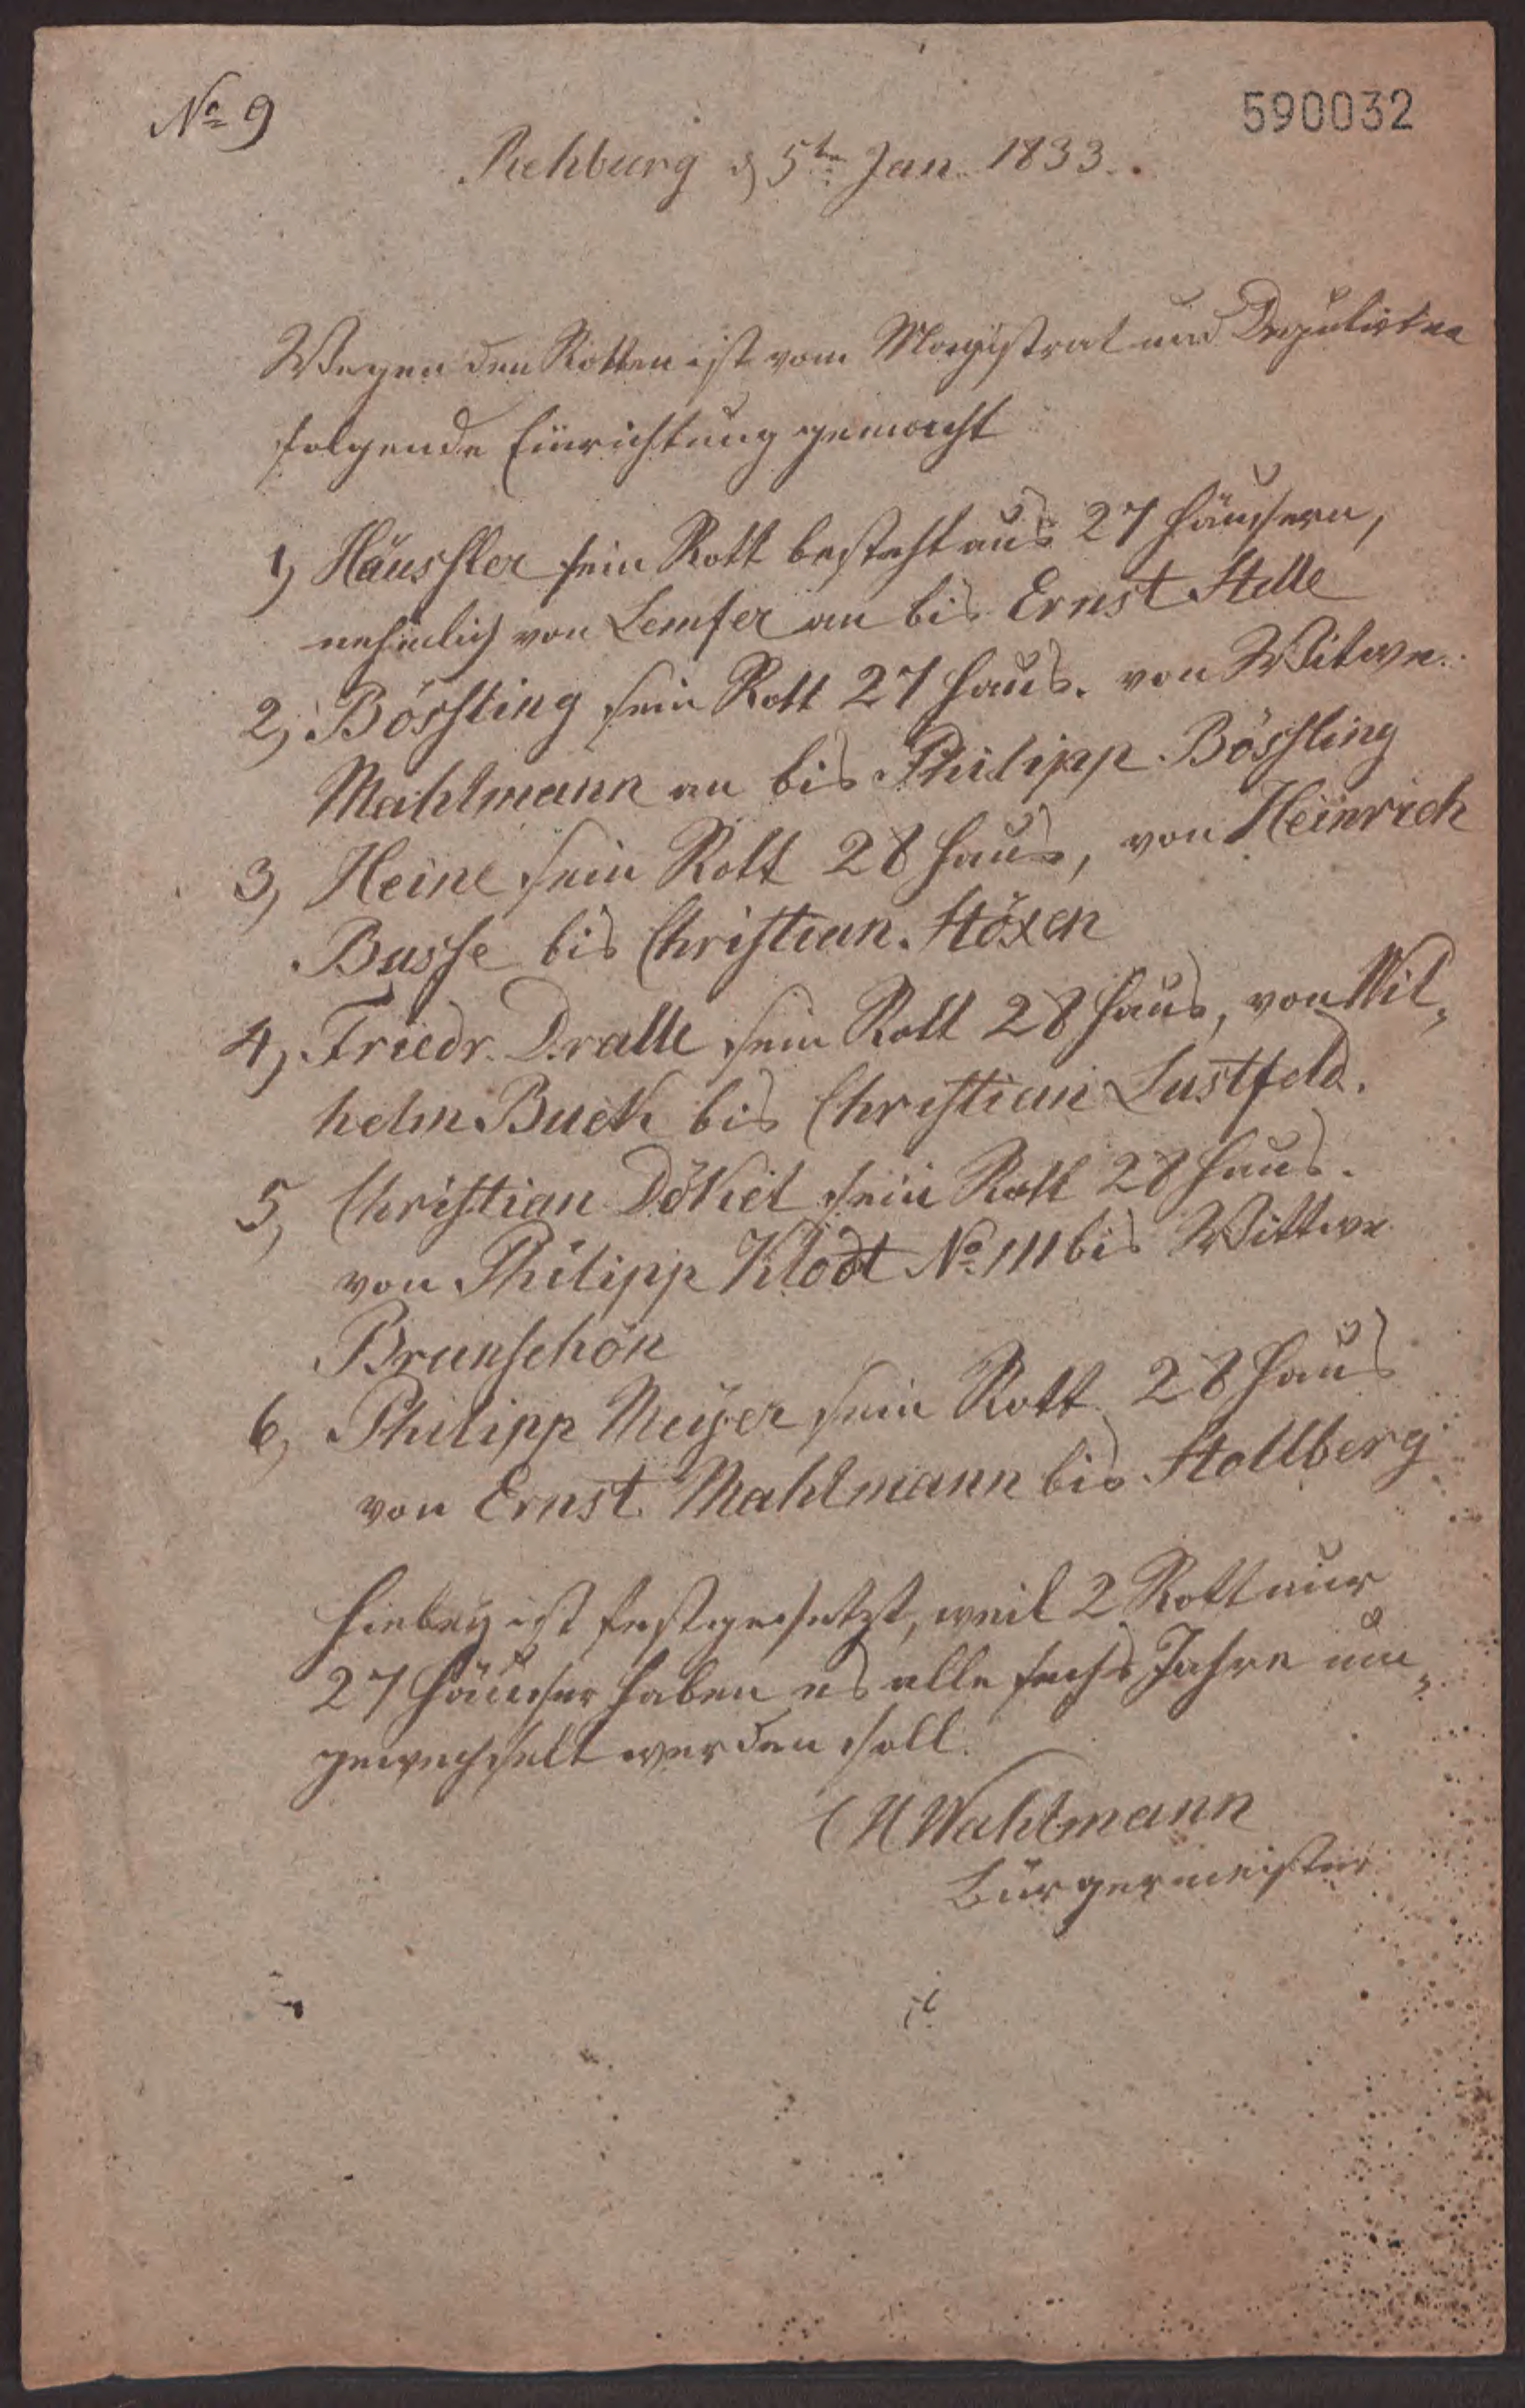 No 9
590032
Rehburg d 5ten Jan. 1833.
Wegen den Rotten ist vom Magistrat und Deputirten
folgende Einrichtung gemacht
1, Häussler sein Rott besteht aus 27 Häusern,
nehmlich von Lemfer an bis Ernst Stelle
2, Bössling sein Rott 27 Haus. von Witwe
Mahlmann an bis Philipp Bössling
3, Heine sein Rott 28 Haus, von Heinrich
Busse bis Christian Stöxen
4, Friedr. Dralle sein Rott 28 Haus, von Wil„
helm Buck bis Christian Lustfeld.
5, Christian Dökel sein Rott 28 Haus.
von Philipp Klodt No 111 bis Wittwe
Brunschön
6, Philipp Meÿer sein Rott 28 Haus
von Ernst Mahlmann bis Stollberg
Hiebey ist festgesetzt, weil 2 Rott nur
27 Häuser haben es alle sechs Jahre um„
gewechselt werden soll.
Mahlmann
Bürgermeister